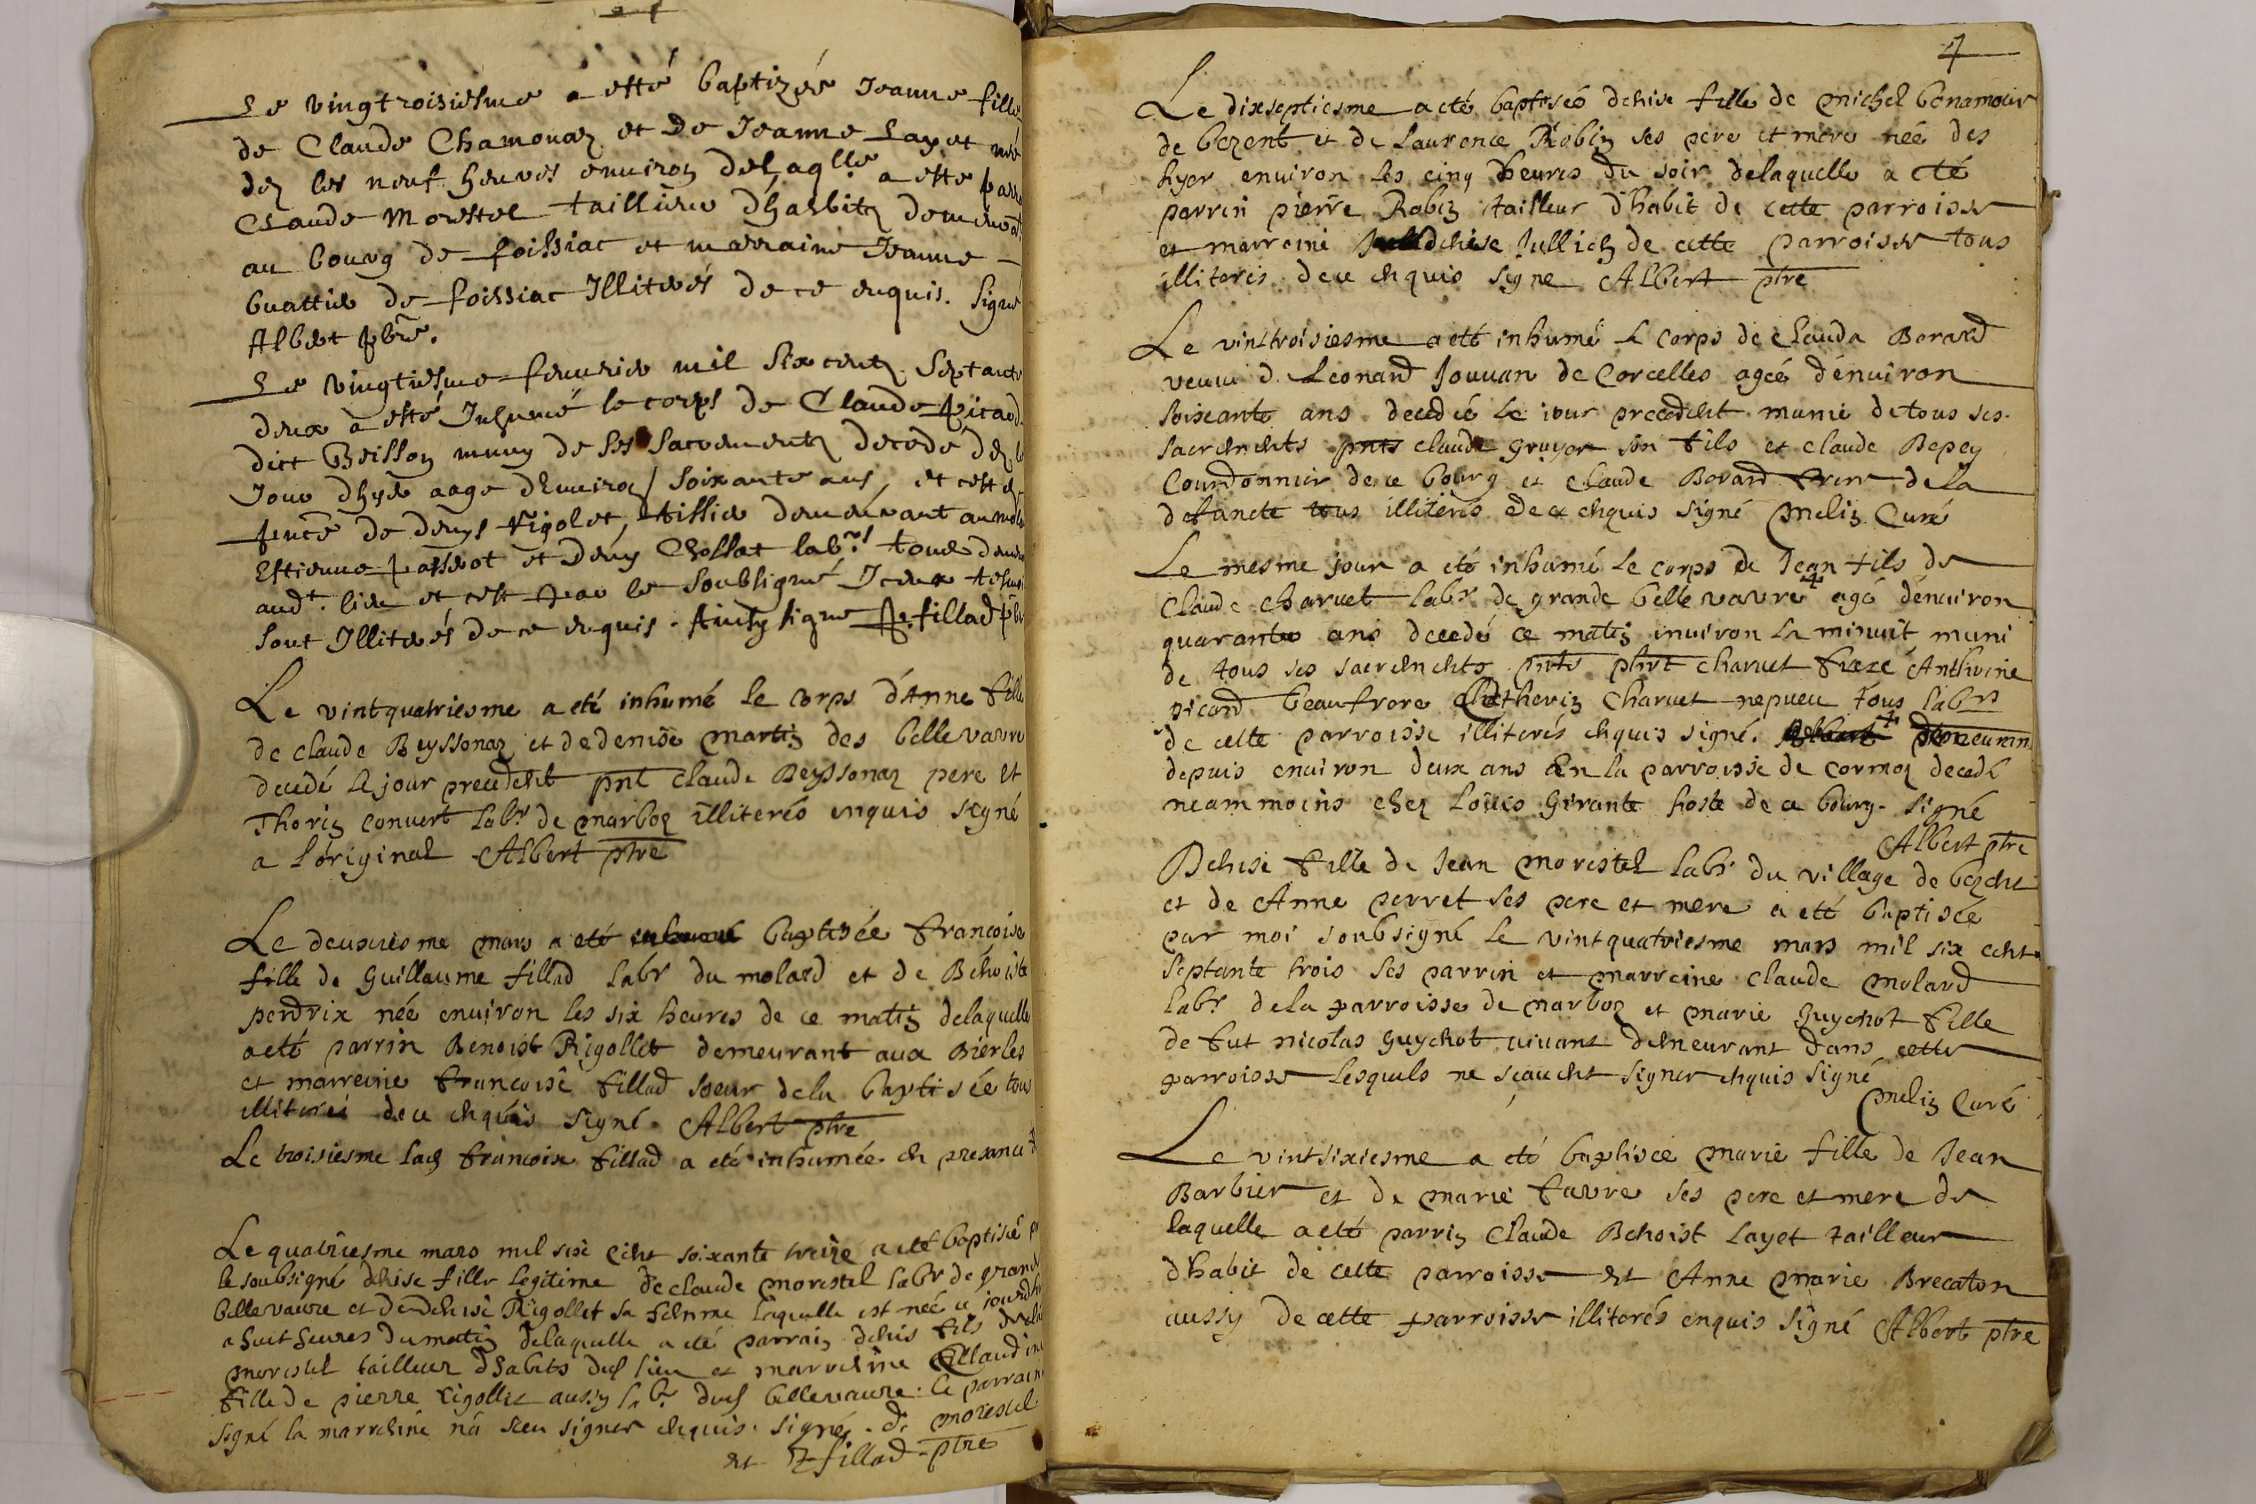 Le vingtroisiesme a esté baptizée Jeanne fille
de Claude Chamonaz et de Jeanne Layet née
dez les neuf heures environ de laqlle a esté parr
Claude Morestel taillieur d'habitz demeurat
au bourg de foissiac et marraine Jeanne
buattier de foissiac Illiterés de ce enquis. Signé
Albert pbre.
Le vingtiesme febvrier mil six centz septante
deux a esté Inhumé le corps de Claude picard
dict Boisson muny de ses sacrementz decedé dez le
Jour d'hyer aagé d'environ soixante ans, et cest e
pnce de denys Rigolet, tissier demeurant au mola
Estienne passerot et deny Chollat labrs tous deme
audt. lieu et cest par le soubsigné Iceux tesmoi
sont Illiterés de ce enquis. Ainsy signé fillad pbr
Le vintquatriesme a eté inhumé le corps d'Anne fille
de claude Beyssonaz et de denise martin des bellevavre
decedé le jour precedent pnt claude Beyssonaz pere et
Thorin convert labr de marboz illiterés enquis signé
a l'original Albert ptre
Le deuxuiesme mars a eté inhumé baptisée françoise
fille de guillaume fillad labr du molard et de Benoiste
perdrix née environ les six heures de ce matin delaquelle
a eté parrin Benoist Rigollet demeurant aux Bierles
et marreine francoise fillad soeur dela baptisée tous
illiterés de ce enquis signé. Albert ptre
Le troisiesme lad francoise fillad a eté inhumée en presance d
Le quatriesme mars mil six cent soixante treize a eté baptisée p
le soubsigné denise fille legitime de claude morestel labr de grand
bellevavre et de denise Rigollet sa femme laquelle est née ce jourdh
a huit heures du matin delaquelle a eté parrain denis fils de
morestel tailleur d'habits dud lieu et marreine Claudine
fille de pierre rigollet aussy labr dud bellevavre. le parrain
signé la marreine n'a sceu signer enquis. signé. d. morestel
et fillad ptre
4
Le dixseptiesme a eté baptisée denise fille de michel bonamour
de bezent et de Laurence Robin ses pere et mere née des
hyer environ les cinq heures du soir delaquelle a eté
parrin pierre Robin tailleur d'habit de cette parroisse
et marreine denise Jullien de cette parroisse tous
illiterés de ce enquis signé Albert ptre
Le vinttroisiesme a eté inhumé le corps de Clauda Borard
veuve d. Leonard Jouvan de Corcelles agée d'environ
soixante ans decedée le jour precedent munie de tous ses
sacrements pnts claude gruyer son fils et claude Bepey
Courdonnier de ce bourg et claude Borard frere de la
defuncte tous illiterés de ce enquis signé Melin Curé
Le mesme jour a eté inhumé le corps de Jean fils de
Claude charvet labr de grande belle vavre agé d'environ
quarante ans decedé ce matin environ la minuit muni
de tous ses sacrements pnts phrt charvet frere Anthoine
picard beaufrere Chatherin Charvet nepveu tous labrs
de cette parroisse illiterés enquis signé. Albert
depuis environ deux ans en la parroisse de cormoz decedé
neammoins chez Loüis Girante hoste de ce bourg. signé
Albert ptre
Denise fille de Jean morestel labr du village de bezent
et de Anne perret ses pere et mere a eté baptisée
par moi soubsigné le vintquatriesme mars mil six cent
septante trois ses parrin et marreine claude molard
labr dela parroisse de marboz et marie guychot fille
de fut nicolas guychot vivant demeurant dans cette
parroisse lesquels ne sçauent signer enquis signé
Melin Curé
Le vintsixiesme a eté baptisée marie fille de Jean
Barbier et de marie favre ses pere et mere de
laquelle a eté parrin Claude Benoist Layet tailleur
d'habit de cette parroisse et Anne marie Brecaton
aussy de cette parroisse illiterés enquis signé Albert ptre